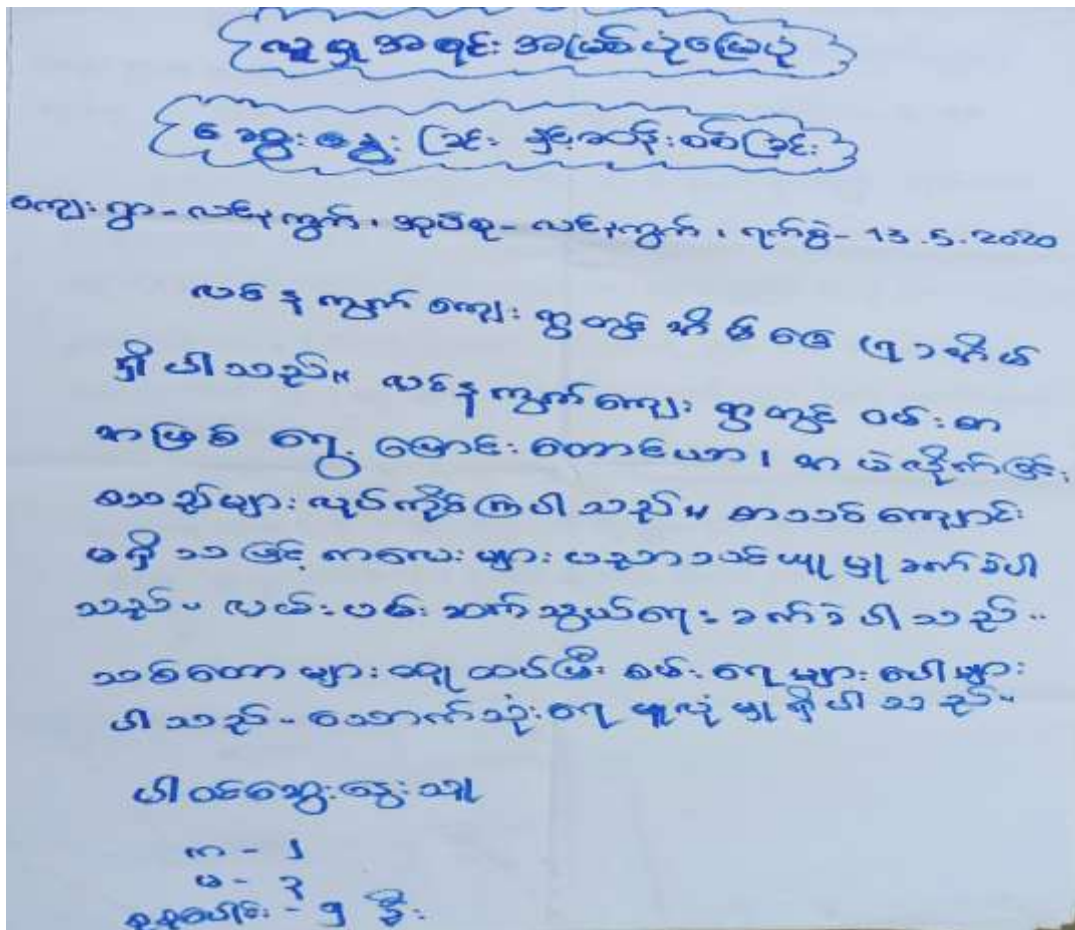 လူမှုအရင်းအမြစ်ပုံမြေပုံ
ဆွေးနွေးခြင်း နှင့်ဆန်းစစ်ခြင်း
ကျေးရွာ - လင်းနကွက်၊ အုပ်စု - လင်းနကွက်၊ ရက်စွဲ - 13.5.2020
လင်းနကွက် ကျေးရွာတွင် အိမ်ခြေ
ရှိပါသည်။ လင်းနကွက်ကျေးရွာတွင် ဝမ်းစာ
အဖြစ် ရွှေ့ပြောင်းတောင်ယာ၊
စသည်များ လုပ်ကိုင်ကြပါသည်။ စာသင်ကျောင်း
မရှိသဖြင့် ကလေးများ ပညာသင်ယူမှု ခက်ခဲပါ
သည်။ လမ်းပမ်းဆက်သွယ်ရေး ခက်ခဲပါသည်။
သစ်တောများ ထူထပ်ပြီး စမ်းရေများ ပေါများ
ပါသည်။ သောက်သုံးရေ ဖူလုံမှုရှိပါသည်။
ပါဝင်ဆွေးနွေးသူ
က - ၂
မ - ၃
စုစုပေါင်း - ၅ ဦး